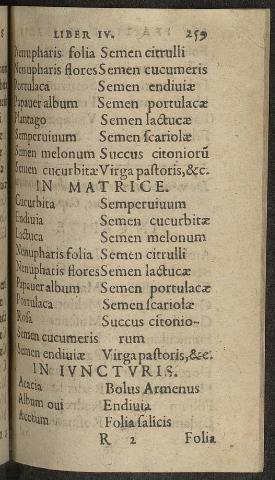 LIBER IV. 259
Nenupharis folia Semen citrulli
Nenupharis flores Semen cucumeris
Portulaca Semen endiuiæ
Papauer album Semen portulacæ
Plantago Semen lactucæ
Semperuiuum Semen scariolæ
Semen melonum Succus citoniorũ
Semen cucurbitæ Virga pastoris, &c.
IN MATRICE.
Cucurbita Semperuiuum
Endiuia Semen cucurbitæ
Lactuca Semen melonum
Nenupharis folia Semen citrulli
Nenupharis flores Semen lactucæ
Papauer album Semen portulacæ
Portulaca Semen scariolæ
Rosa Succus citonio-
Semen cucumeris rum
Semen endiuiæ Virga pastoris, &c.
IN IVNCTVRIS.
Acacia Bolus Armenus
Album oui Endiuia
Acetum Folia salicis
R 2 Folia